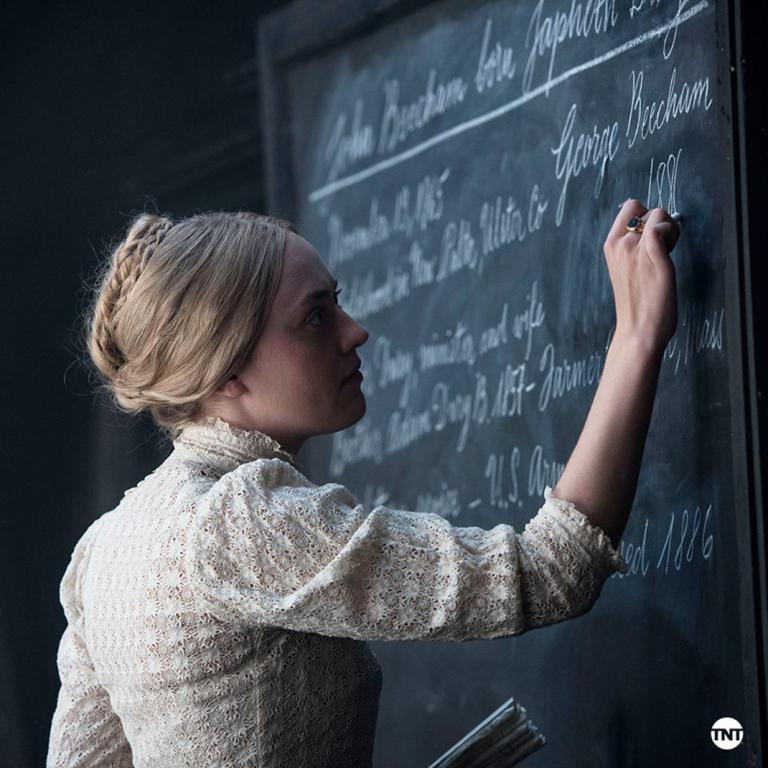 John Beecham born Japheth Dury
George Beecham
November 13, 1865
188
New Paltz, Ulster Co
Dury, minister, and wife
Brother, Adam Dury B. 1857 - Farmer, Mass
- U.S. Army
1886
TNT